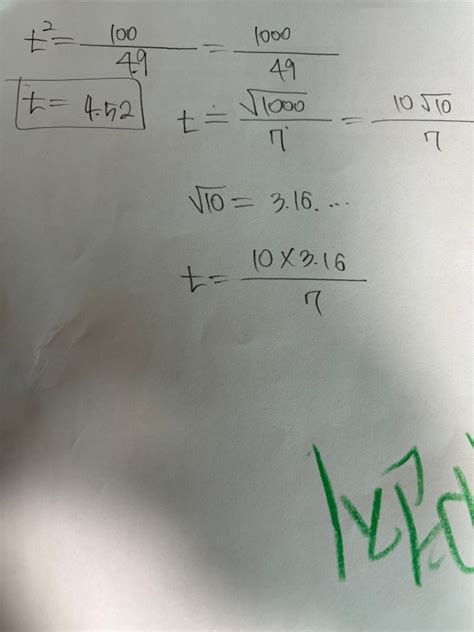 t² = 100/4.9 = 1000/49
t = 4.52
t ≒ √1000/7 = 10√10/7
√10 = 3.16...
t = 10×3.16/7